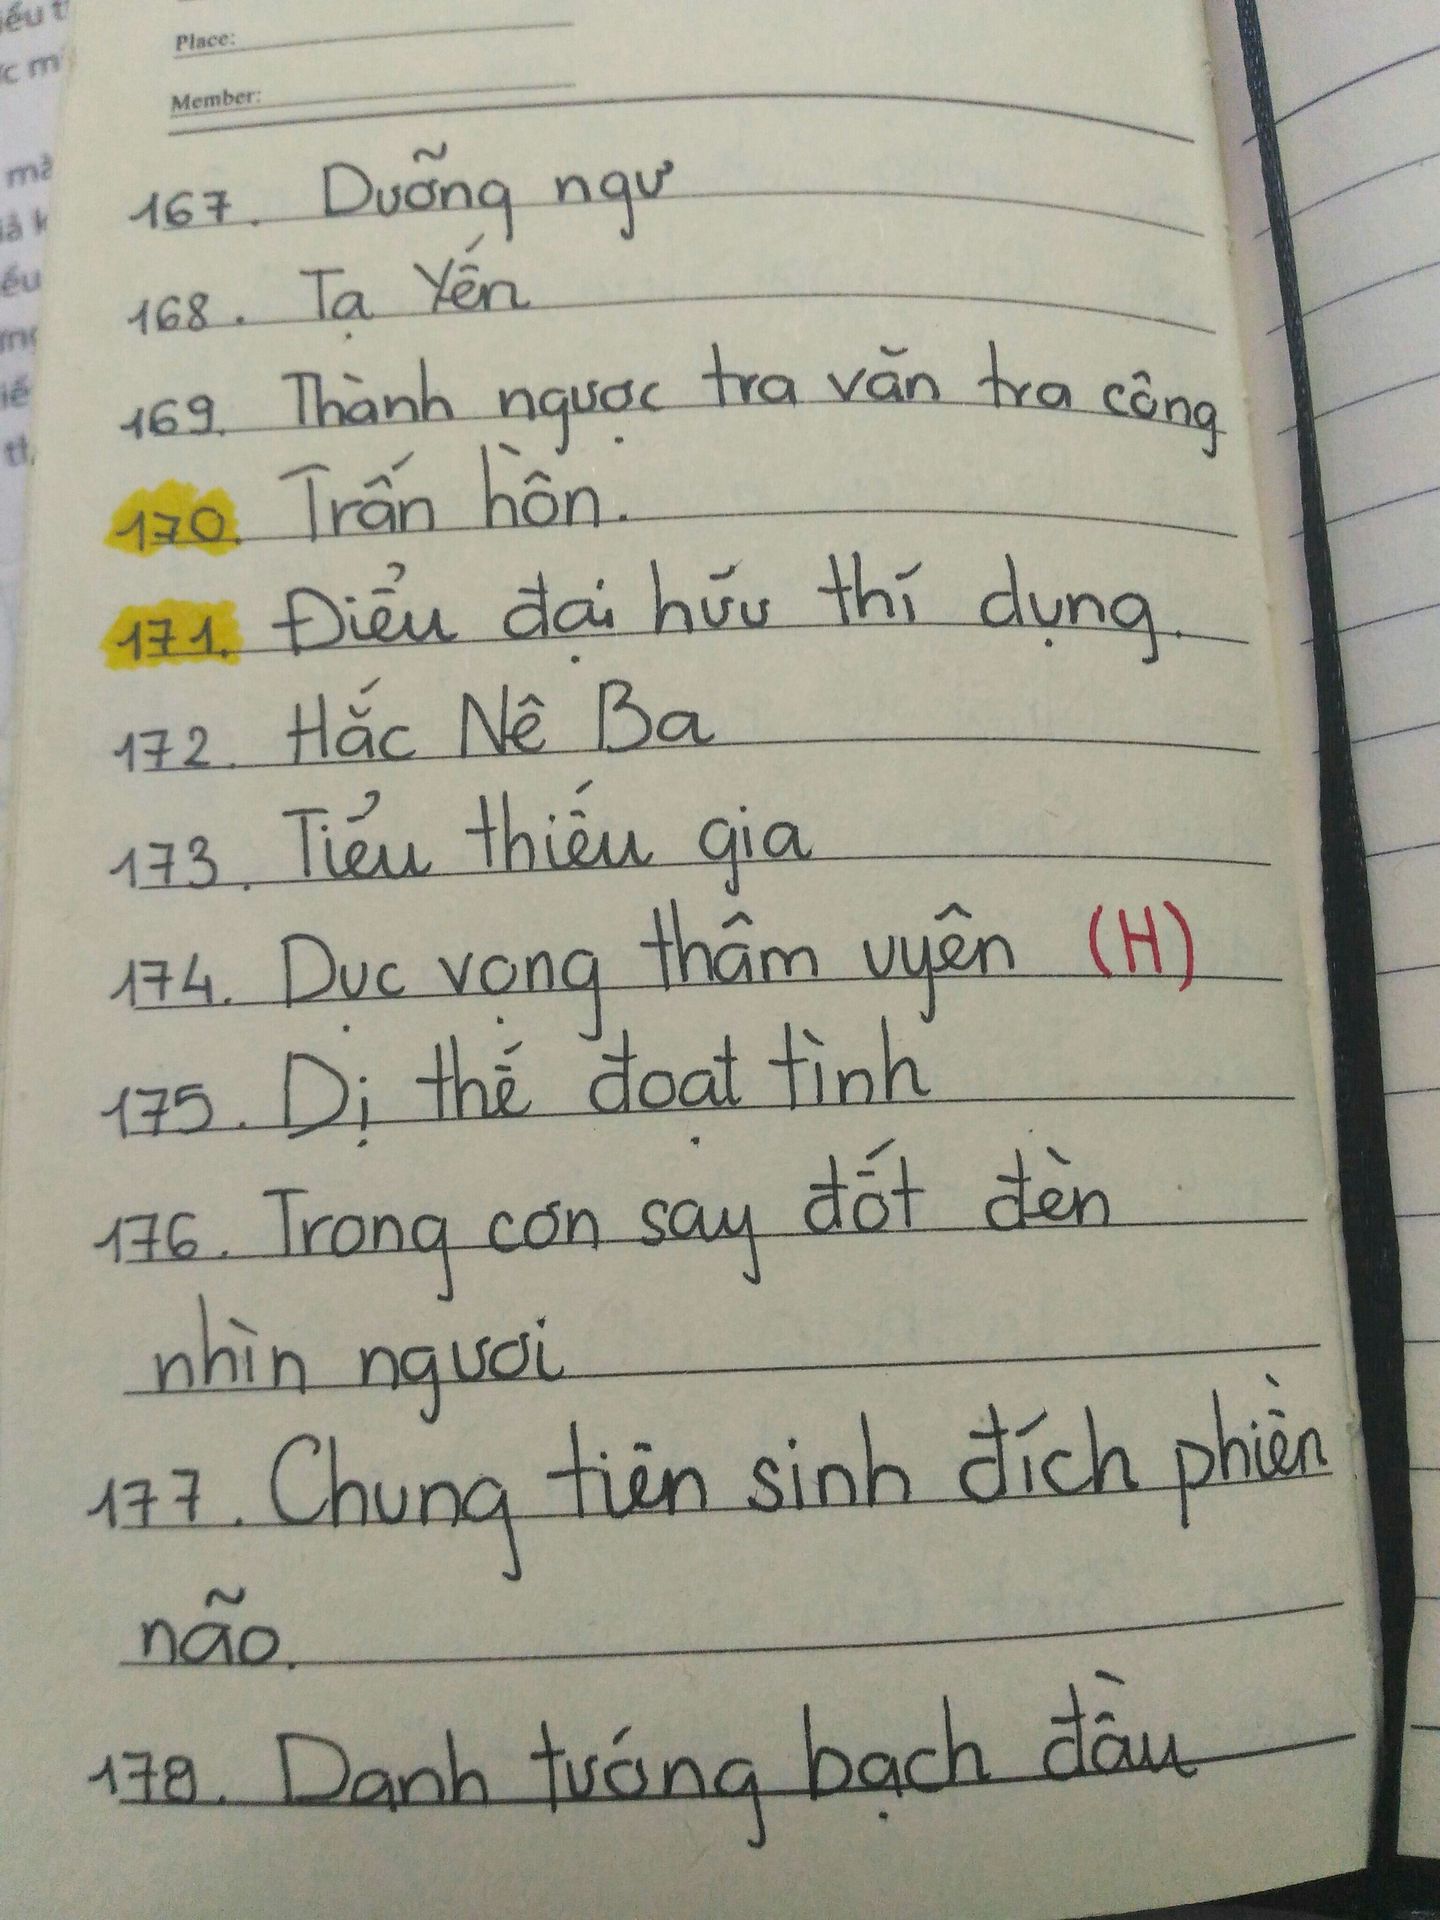 Place:
Member:
167. Dưỡng ngư
168. Tạ Yến
169. Thành ngược tra văn tra công
170. Trấn hồn.
171. Điểu đại hữu thí dụng.
172. Hắc Nê Ba
173. Tiểu thiếu gia
174. Dục vọng thâm uyên (H)
175. Dị thế đoạt tình
176. Trong cơn say đốt đèn
nhìn ngươi
177. Chung tiên sinh đích phiền
não.
178. Danh tướng bạch đầu